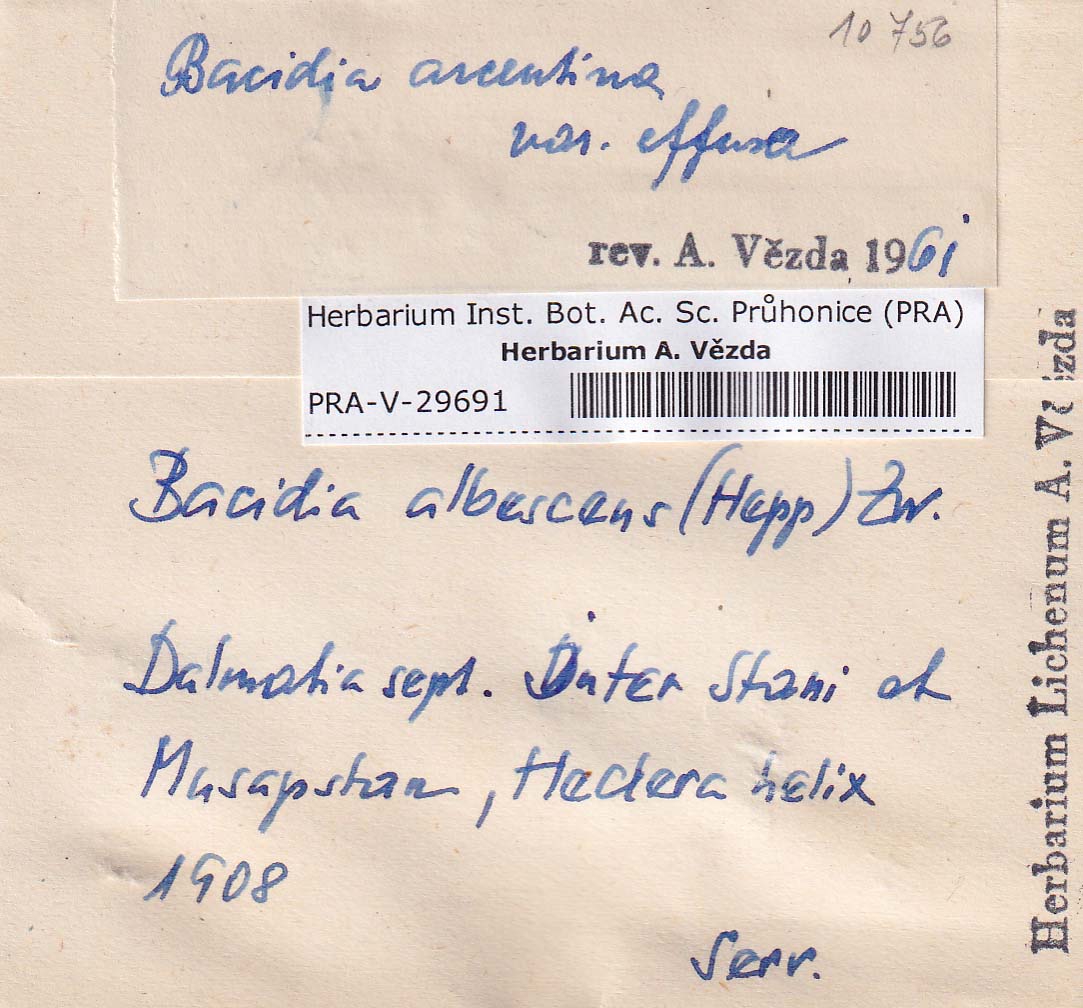 10 756
Bacidia arcentina
var. effusa
rev. A. Vězda 1961
Herbarium Inst. Bot. Ac. Sc. Průhonice (PRA)
Herbarium A. Vězda
PRA-V-29691
Bacidia albescens (Hepp) Zw.
Dalmatia sept. Inter Stani et
Musapstan, Hedera helix
1908
Serv.
Herbarium Lichenum A. Vězda